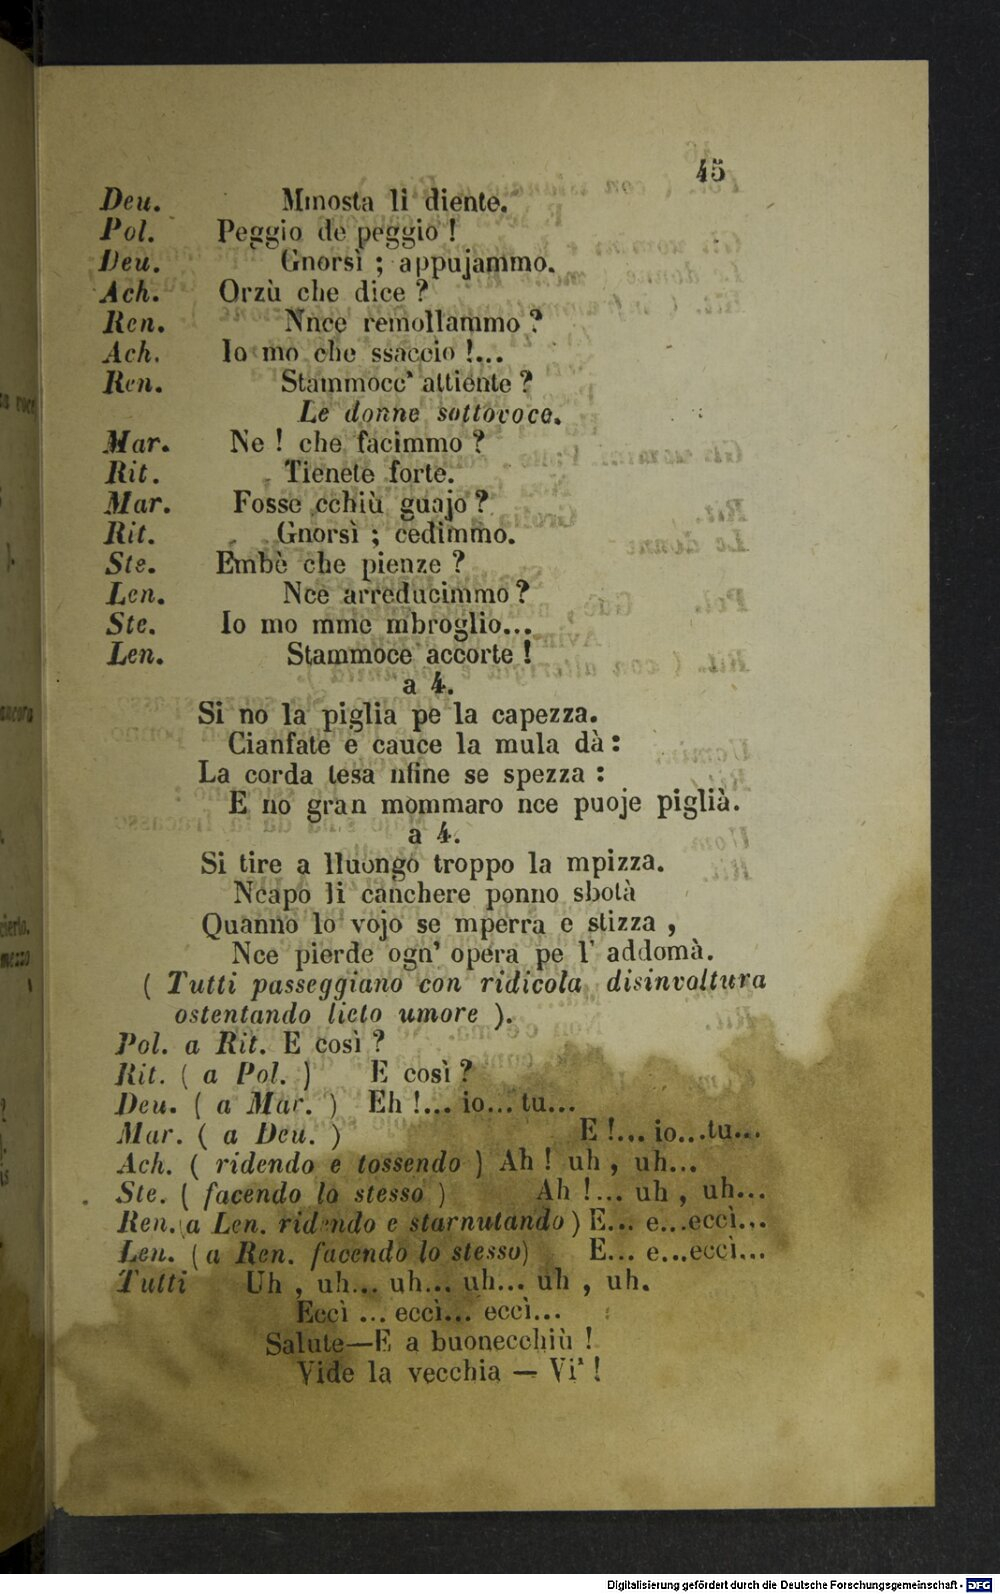 45
Deu. Mmosta li diente.
Pol. Peggio de peggio !
Deu. Gnorsì ; appujammo.
Ach. Orzù che dice ?
Ren. Nnce remollammo ?
Ach. Io mo che ssaccio !...
Ren. Stammocc' attiente ?
Le donne sottovoce.
Mar. Ne ! che facimmo ?
Rit. Tienete forte.
Mar. Fosse cchiù guajo ?
Rit. Gnorsì ; cedimmo.
Ste. Embè che pienze ?
Len. Nce arreducimmo ?
Ste. Io mo mme mbroglio...
Len. Stammoce accorte !
a 4.
Si no la piglia pe la capezza.
Cianfate e cauce la mula dà :
La corda tesa nfine se spezza :
E no gran mommaro nce puoje piglià.
a 4.
Si tire a lluongo troppo la mpizza.
Ncapo li canchere ponno sbotà
Quanno lo vojo se mperra e stizza ,
Nce pierde ogn' opera pe l' addomà.
( Tutti passeggiano con ridicola disinvoltura
ostentando lieto umore ).
Pol. a Rit. E così ?
Rit. ( a Pol. ) E così ?
Deu. ( a Mar. ) Eh !... io... tu...
Mar. ( a Deu. ) E !... io...tu...
Ach. ( ridendo e tossendo ) Ah ! uh , uh...
Ste. ( facendo lo stesso ) Ah !... uh , uh...
Ren. a Len. ridendo e starnutando ) E... e...eccì...
Len. ( a Ren. facendo lo stesso) E... e...eccì...
Tutti Uh , uh... uh... uh... uh , uh.
Eccì ... eccì... eccì...
Salute—E a buonecchiù !
Vide la vecchia — Vi' !
Digitalisierung gefördert durch die Deutsche Forschungsgemeinschaft - DFG